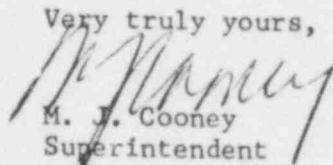 Very truly yours,
M. J. Cooney
M. J. Cooney
Superintendent